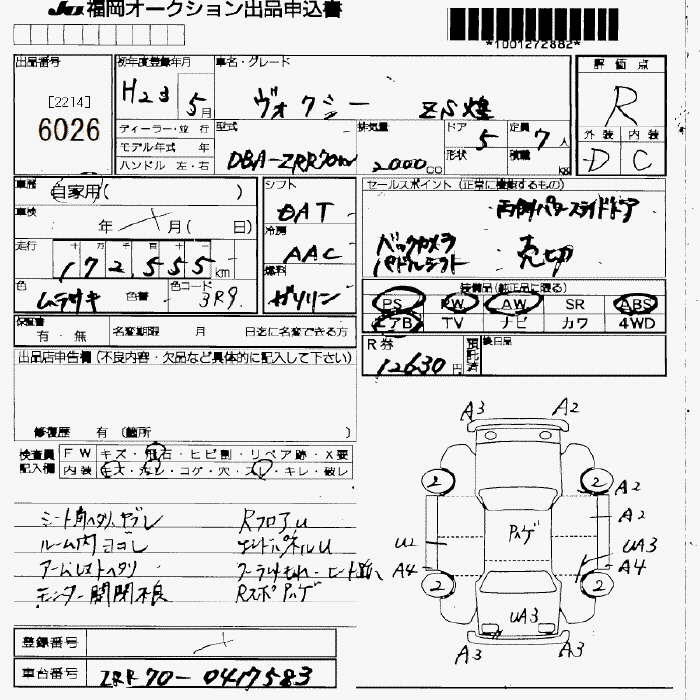 JU福岡オークション出品申込書
*1001272882*
出品番号
[2214]
6026
初年度登録年月
H23 5月
ディーラー・並 行
モデル年式 年
ハンドル 左・右
車名・グレード
ヴォクシー ZS煌
型式
DBA-ZRR70W
排気量
2000cc
ドア 5
形状
定員 7人
積載 kg
評価点
R
外装 内装
D C
車歴
自家用( )
車検
年 月( 日)
走行
十万千百十
172,555km
色
ムラサキ
色替
色コード
3R9
シフト
DAT
冷房
AAC
燃料
ガソリン
セールスポイント(正常に機能するもの)
両側パワースライドドア
バックカメラ
パドルシフト
売切
装備品(純正品に限る)
PS PW AW SR ABS
エアB TV ナビ カワ 4WD
保証書
有・無
名変期限 月 日迄に名変できる方
R券
12630円
預託済
後日品
出品店申告欄(不良内容・欠品など具体的に記入して下さい)
修復歴 有(箇所 )
検査員記入欄
FW キズ・飛石・ヒビ割・リペア跡・X要
内装 キズ・汚レ・コゲ・穴・スレ・キレ・破レ
シート角ヘタリ、ヤブレ
ルーム内ヨゴレ
アームレストヘタリ
モニター開閉不良
RフロアU
エンドパネルU
RスポハゲA3 A2
2 2
A2
A2
ハゲ
U2
UA3
A4 A4
2 2
UA3
A3 A3
登録番号
車台番号
ZRR70-0417583